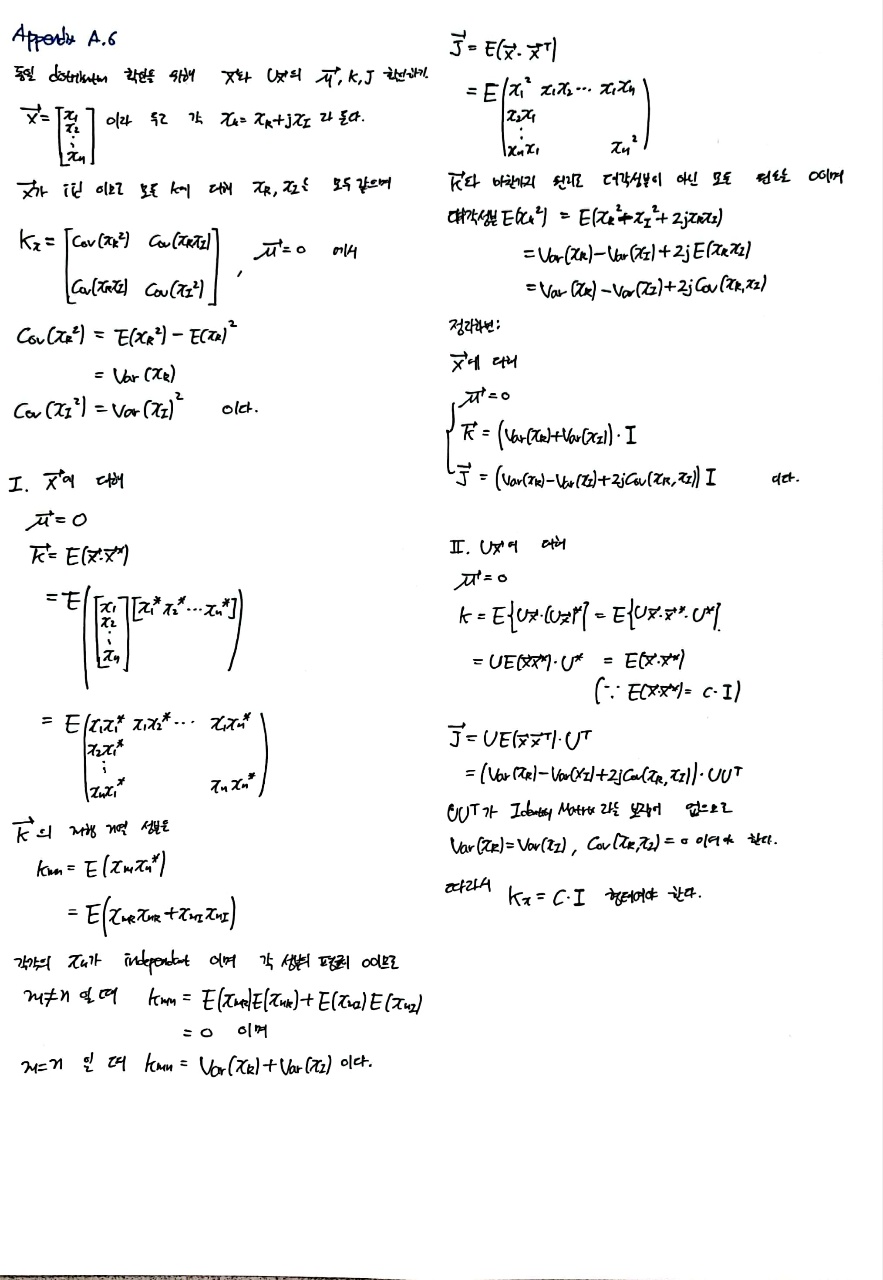 Appendix A.6
동일 distribution 확인을 위해 x와 Ux의 μ⃗, K, J 확인하기.
x⃗ = [x₁ x₂ ⋮ xₙ] 이라 두고 각 xₖ = x_R + jx_I 라 둔다.
x⃗가 iid 이므로 모든 k에 대해 x_R, x_I는 모두 같으며
Kₓ = [Cov(x_R²) Cov(x_R x_I)
Cov(x_R x_I) Cov(x_I²)] , μ⃗ = 0 에서
Cov(x_R²) = E(x_R²) - E(x_R)²
= Var(x_R)
Cov(x_I²) = Var(x_I)² 이다.
I. x⃗에 대해
μ⃗ = 0
K⃗ = E(x⃗·x⃗*)
= E([x₁ x₂ ⋮ xₙ][x₁* x₂* ⋯ xₙ*])
= E(x₁x₁* x₁x₂* ⋯ x₁xₙ*
x₂x₁*
⋮
xₙx₁* xₙxₙ*)
K⃗의 m행 n열 성분은
kₘₙ = E(xₘxₙ*)
= E(xₘR xₙR + xₘI xₙI)
각각의 xₙ가 independent 이며 각 성분의 평균이 0이므로
m≠n 일 때 kₘₙ = E(xₘR)E(xₙR) + E(xₘI)E(xₙI)
= 0 이며
m=n 일 때 kₘₙ = Var(x_R) + Var(x_I) 이다.
J⃗ = E(x⃗·x⃗ᵀ)
= E(x₁² x₁x₂ ⋯ x₁xₙ
x₂x₁
⋮
xₙx₁ xₙ²)
K⃗와 마찬가지 원리로 대각성분이 아닌 모든 성분은 0이며
대각성분 E(xₖ²) = E(x_R² - x_I² + 2jx_R x_I)
= Var(x_R) - Var(x_I) + 2jE(x_R x_I)
= Var(x_R) - Var(x_I) + 2jCov(x_R, x_I)
정리하면:
x⃗에 대해
μ⃗ = 0
K⃗ = (Var(x_R) + Var(x_I))·I
J⃗ = (Var(x_R) - Var(x_I) + 2jCov(x_R, x_I)) I 이다.
II. Ux⃗에 대해
μ⃗ = 0
K = E{Ux⃗·(Ux⃗)*} = E{Ux⃗·x⃗*·U*}
= UE(x⃗x⃗*)·U* = E(x⃗·x⃗*)
(∵ E(x⃗·x⃗*) = C·I)
J⃗ = UE(x⃗x⃗ᵀ)·Uᵀ
= (Var(x_R) - Var(x_I) + 2jCov(x_R, x_I))·UUᵀ
UUᵀ가 Identity Matrix 라는 보장이 없으므로
Var(x_R) = Var(x_I), Cov(x_R, x_I) = 0 이어야 한다.
따라서 Kₓ = C·I 형태여야 한다.